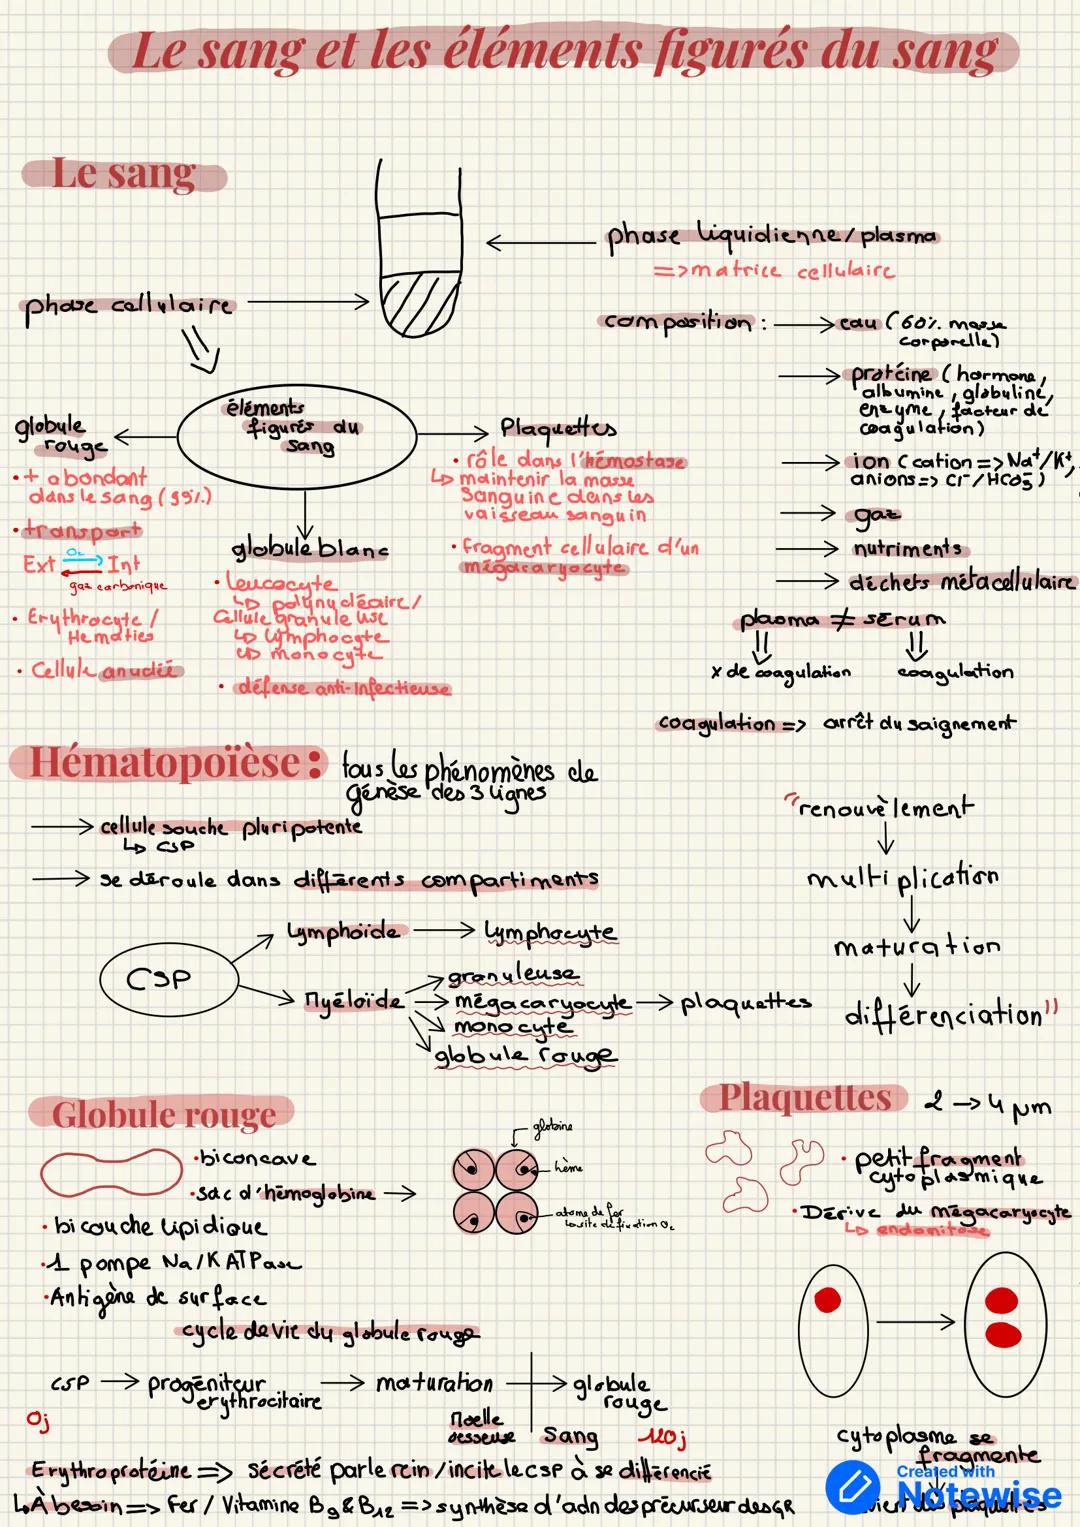 Le sang et les éléments figurés du sang
Le sang
phase liquidienne/plasma
=> matrice cellulaire
phase cellulaire
composition :
eau (60% masse
corporelle)
protéine (hormone,
albumine, globuline,
enzyme, facteur de
coagulation)
ion (cation => Na⁺/K⁺,
anions => Cl⁻/HCO₃⁻)
gaz
nutriments
déchets métacellulaire
plasma ≠ sérum
x de coagulation
coagulation
coagulation => arrêt du saignement
éléments
figurés du
sang
globule
rouge
• + abondant
dans le sang (99%)
• transport
O₂
Ext Int
gaz carbonique
• Erythrocyte /
Hematies
• Cellule anucléé
globule blanc
• leucocyte
↳ polynucléaire/
Cellule granuleuse
↳ lymphocyte
↳ monocyte
• défense anti-infectieuse
Plaquettes
• rôle dans l'hémostase
↳ maintenir la masse
Sanguine dans les
vaisseau sanguin
• fragment cellulaire d'un
mégacaryocyte
Hématopoïèse :
tous les phénomènes de
génèse des 3 lignes
→ cellule souche pluripotente
↳ CSP
→ se déroule dans différents compartiments
CSP
Lymphoïde → lymphocyte
Myéloïde
granuleuse
mégacaryocyte → plaquettes
monocyte
globule rouge
"renouvèlement
multiplication
maturation
différenciation"
Globule rouge
• biconcave
• sac d'hémoglobine →
• bicouche lipidique
• 1 pompe Na/K ATPase
• Antigène de surface
globine
hème
atome de fer
↳ site de fixation O₂
cycle de vie du globule rouge
CSP → progéniteur
erythrocitaire
→ maturation → globule
rouge
0j
Moelle
osseuse
Sang
120j
Erythroprotéine => sécrété par le rein/incite le CSP à se différencié
↳ À besoin => Fer / Vitamine B9 & B12 => synthèse d'adn des précurseur des GR
Plaquettes
2 → 4 µm
• petit fragment
cytoplasmique
• Dérive du mégacaryocyte
↳ endomitose
cytoplasme se
fragmente
plaquettes
Created with
Notewise